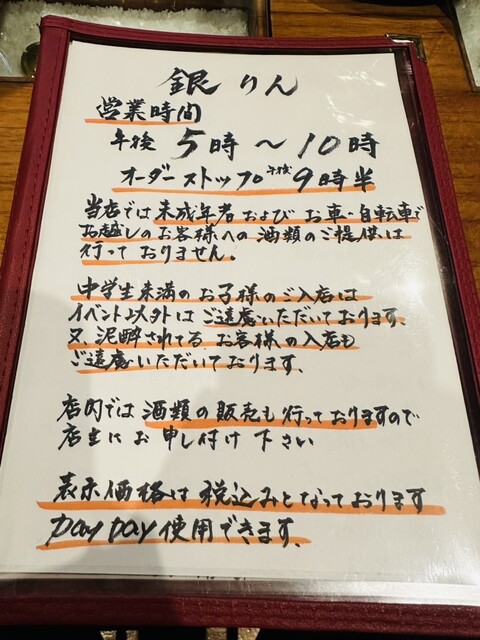 銀りん
営業時間
午後 5時～10時
オーダーストップ 午後 9時半
当店では未成年者およびお車・自転車で
お越しのお客様への酒類のご提供は
行っておりません。
中学生未満のお子様のご入店は
イベント以外はご遠慮いただいております、
又、泥酔されてるお客様への入店も
ご遠慮いただいております、
店内では酒類の販売も行っておりますので
店主にお申し付け下さい
表示価格は税込みとなっております
PayPay使用できます、